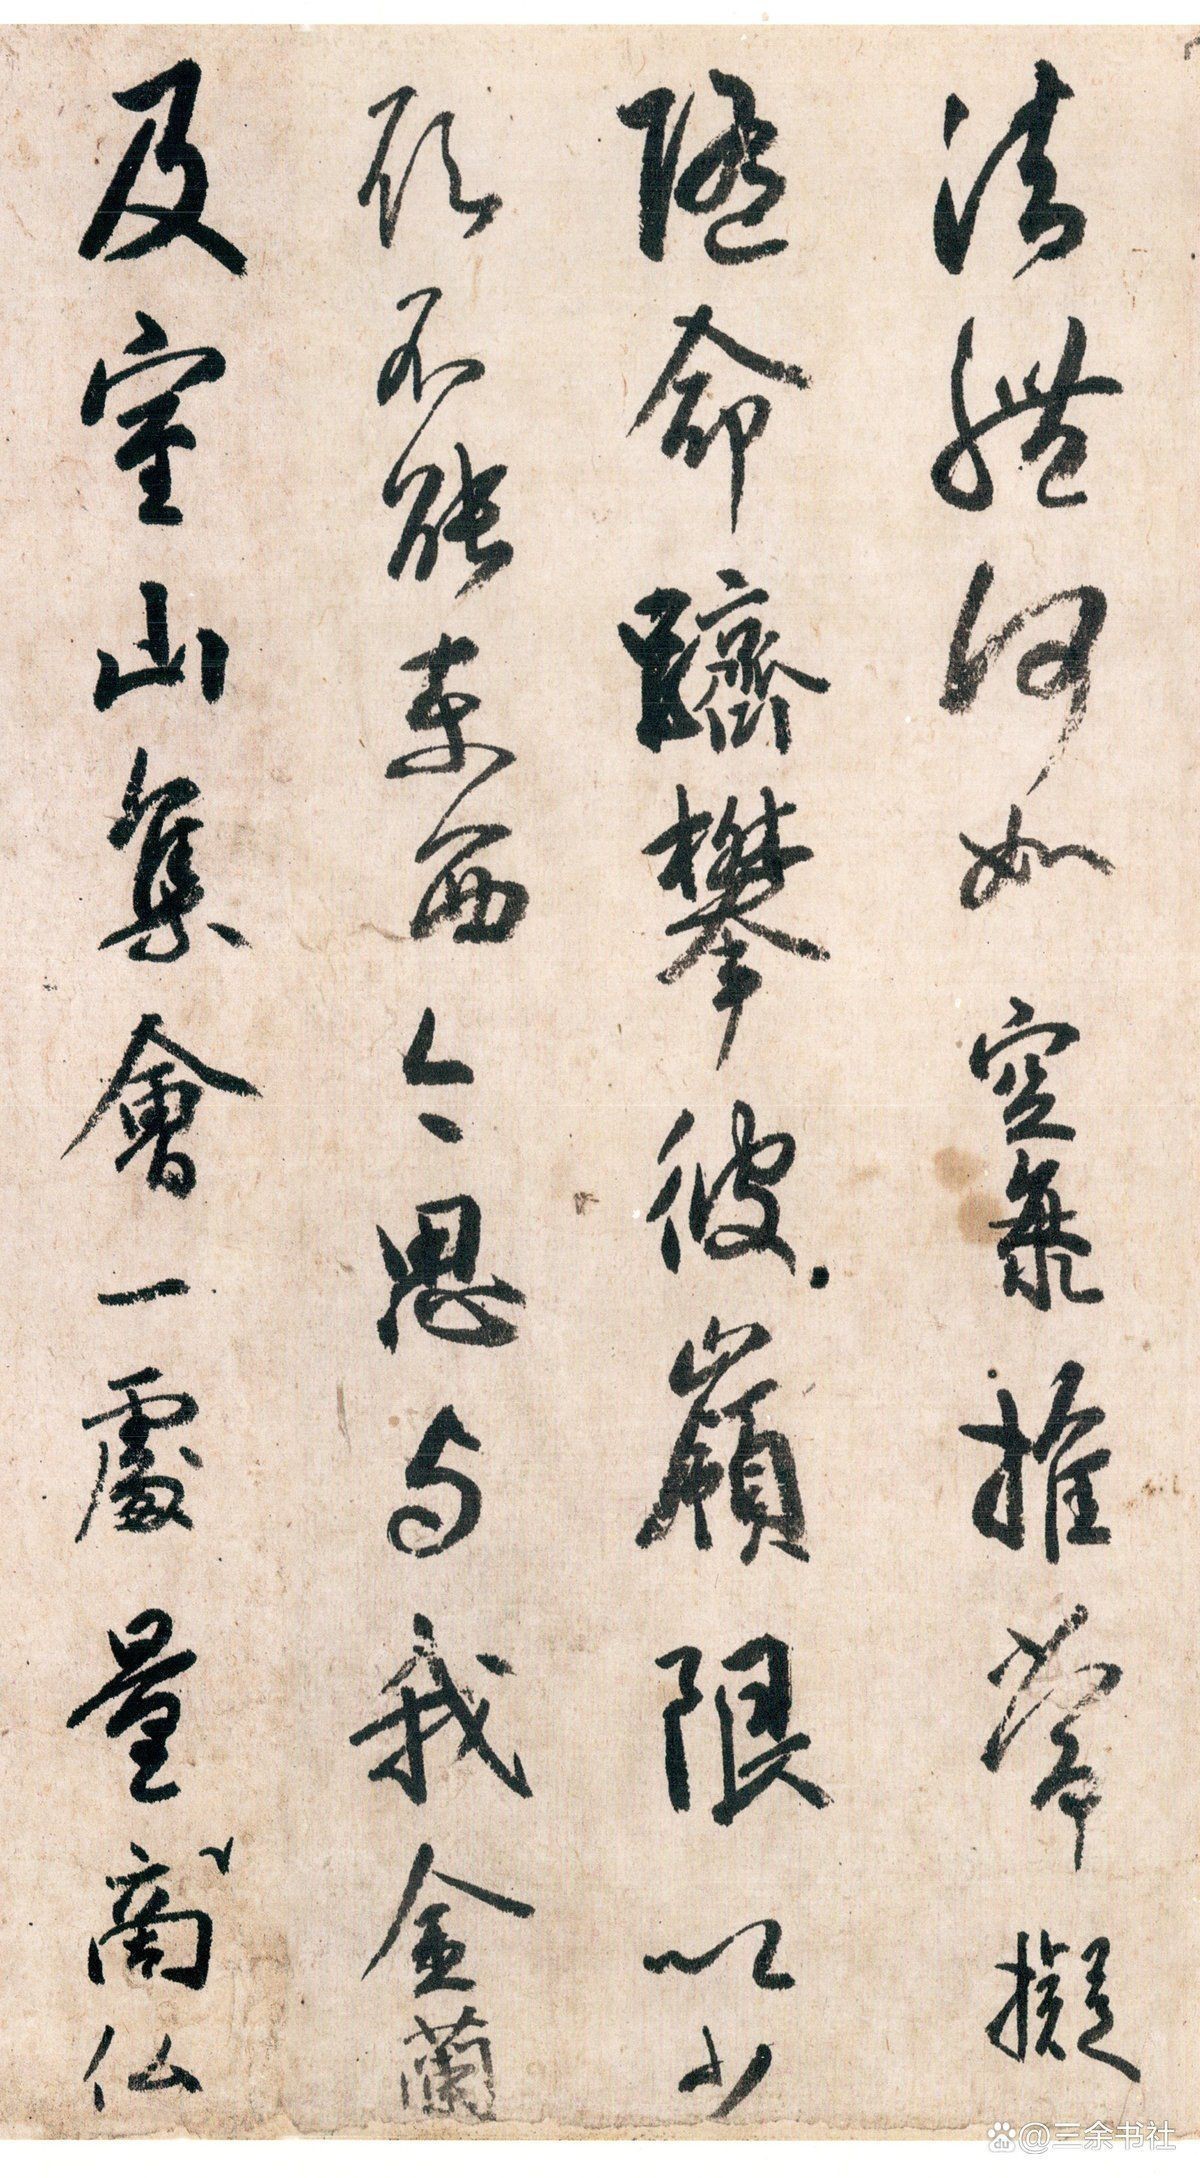 法體何如空海推常擬
隨命躋攀彼嶺限以少
願不能東西今思与我金蘭
及室山集會一處量商仏
@三余书社